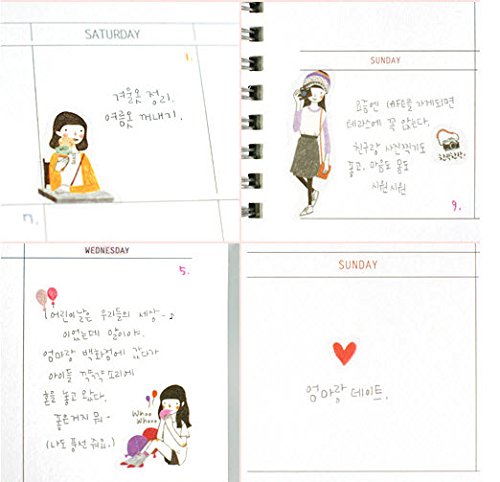 SATURDAY
1.
겨울옷 정리.
여름옷 꺼내기.
SUNDAY
요즘엔 CAFE를 가게되면
테라스에 꼭 앉는다.
친구랑 사진찍기도
좋고, 마음도 몸도
시원시원
찰칵찰칵
9.
WEDNESDAY
5.
어린이날은 우리들의 세상~♪
이었는데 말이야.
엄마랑 백화점에 갔다가
아이들 꺅꺅소리에
혼을 놓고 왔다.
좋은거지 뭐~
(나도 풍선 줘요.)
Whoo
Whooo
SUNDAY
엄마랑 데이트.